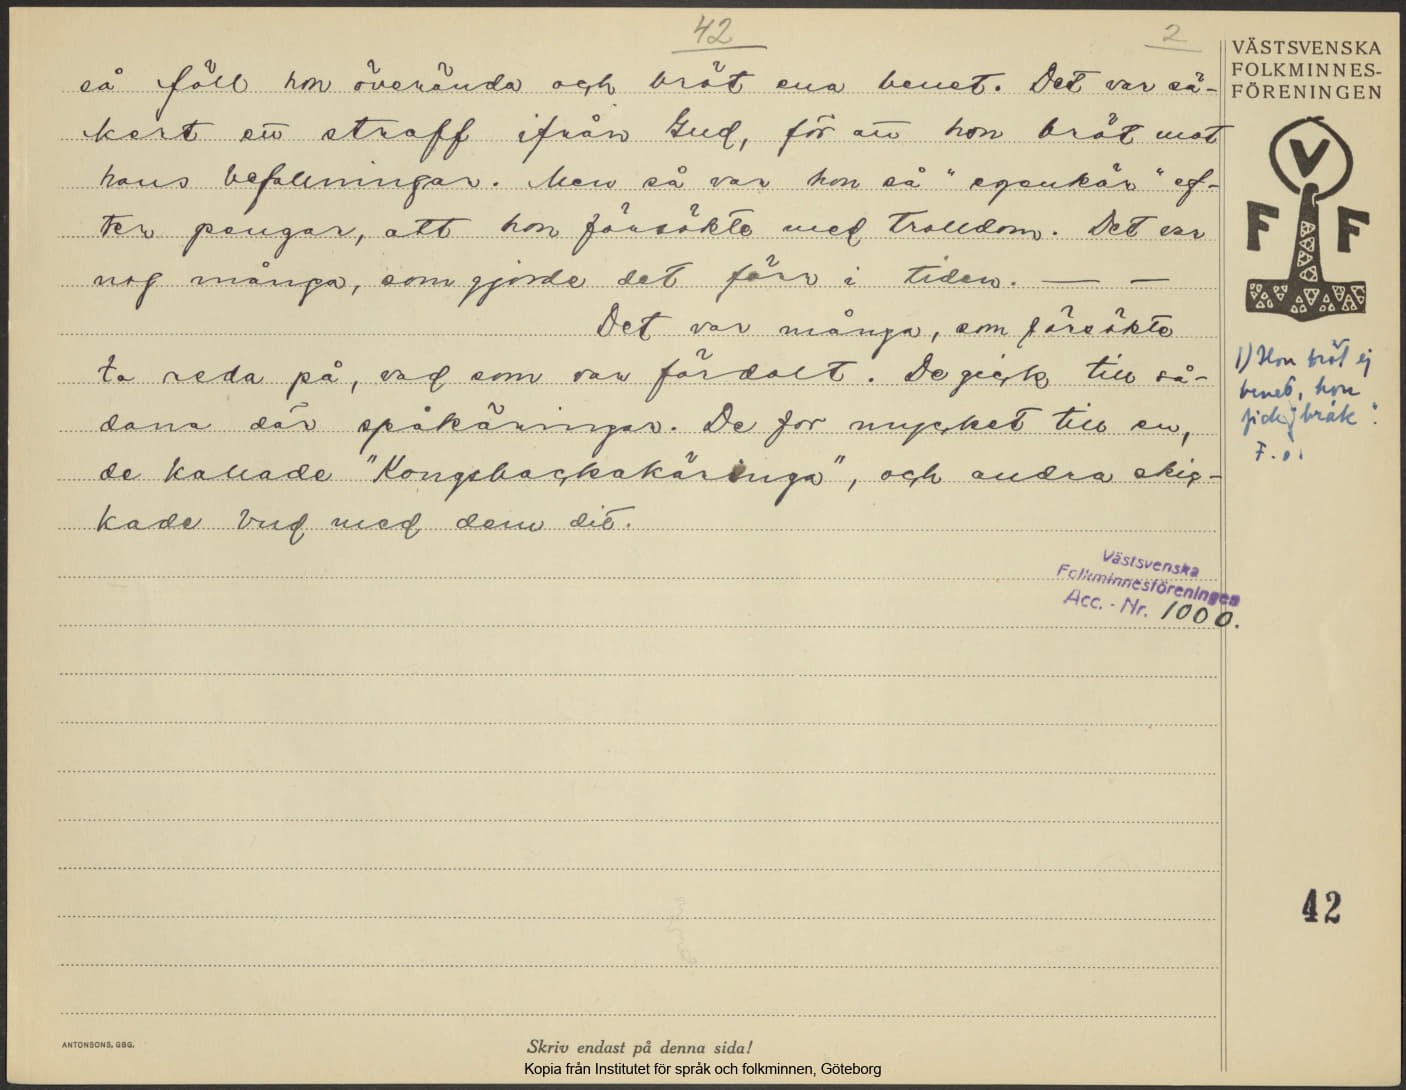 42
2
VÄSTSVENSKA
FOLKMINNES-
FÖRENINGEN
V
F F
så föll hon överända och bröt ena benet. Det var sä-
kert ett straff ifrån Gud, för att hon bröt mot
hans befallningar. Men så var hon så "egenkär" ef-
ter pengar, att hon försökte med trolldom. Det var
nog många, som gjorde det förr i tiden. — —
Det var många, som försökte
ta reda på, vad som var fördolt. De gick till så-
dana där spåkäringar. De for mycket till en,
de kallade "Kongsbackakäringa", och andra skic-
kade bud med dem dit.
1) Hon bröt ej
benet, hon
fick "bråk".
F. o.
Västsvenska
Folkminnesföreningen
Acc. - Nr. 1000.
42
ANTONSONS, GBG.
Skriv endast på denna sida!
Kopia från Institutet för språk och folkminnen, Göteborg